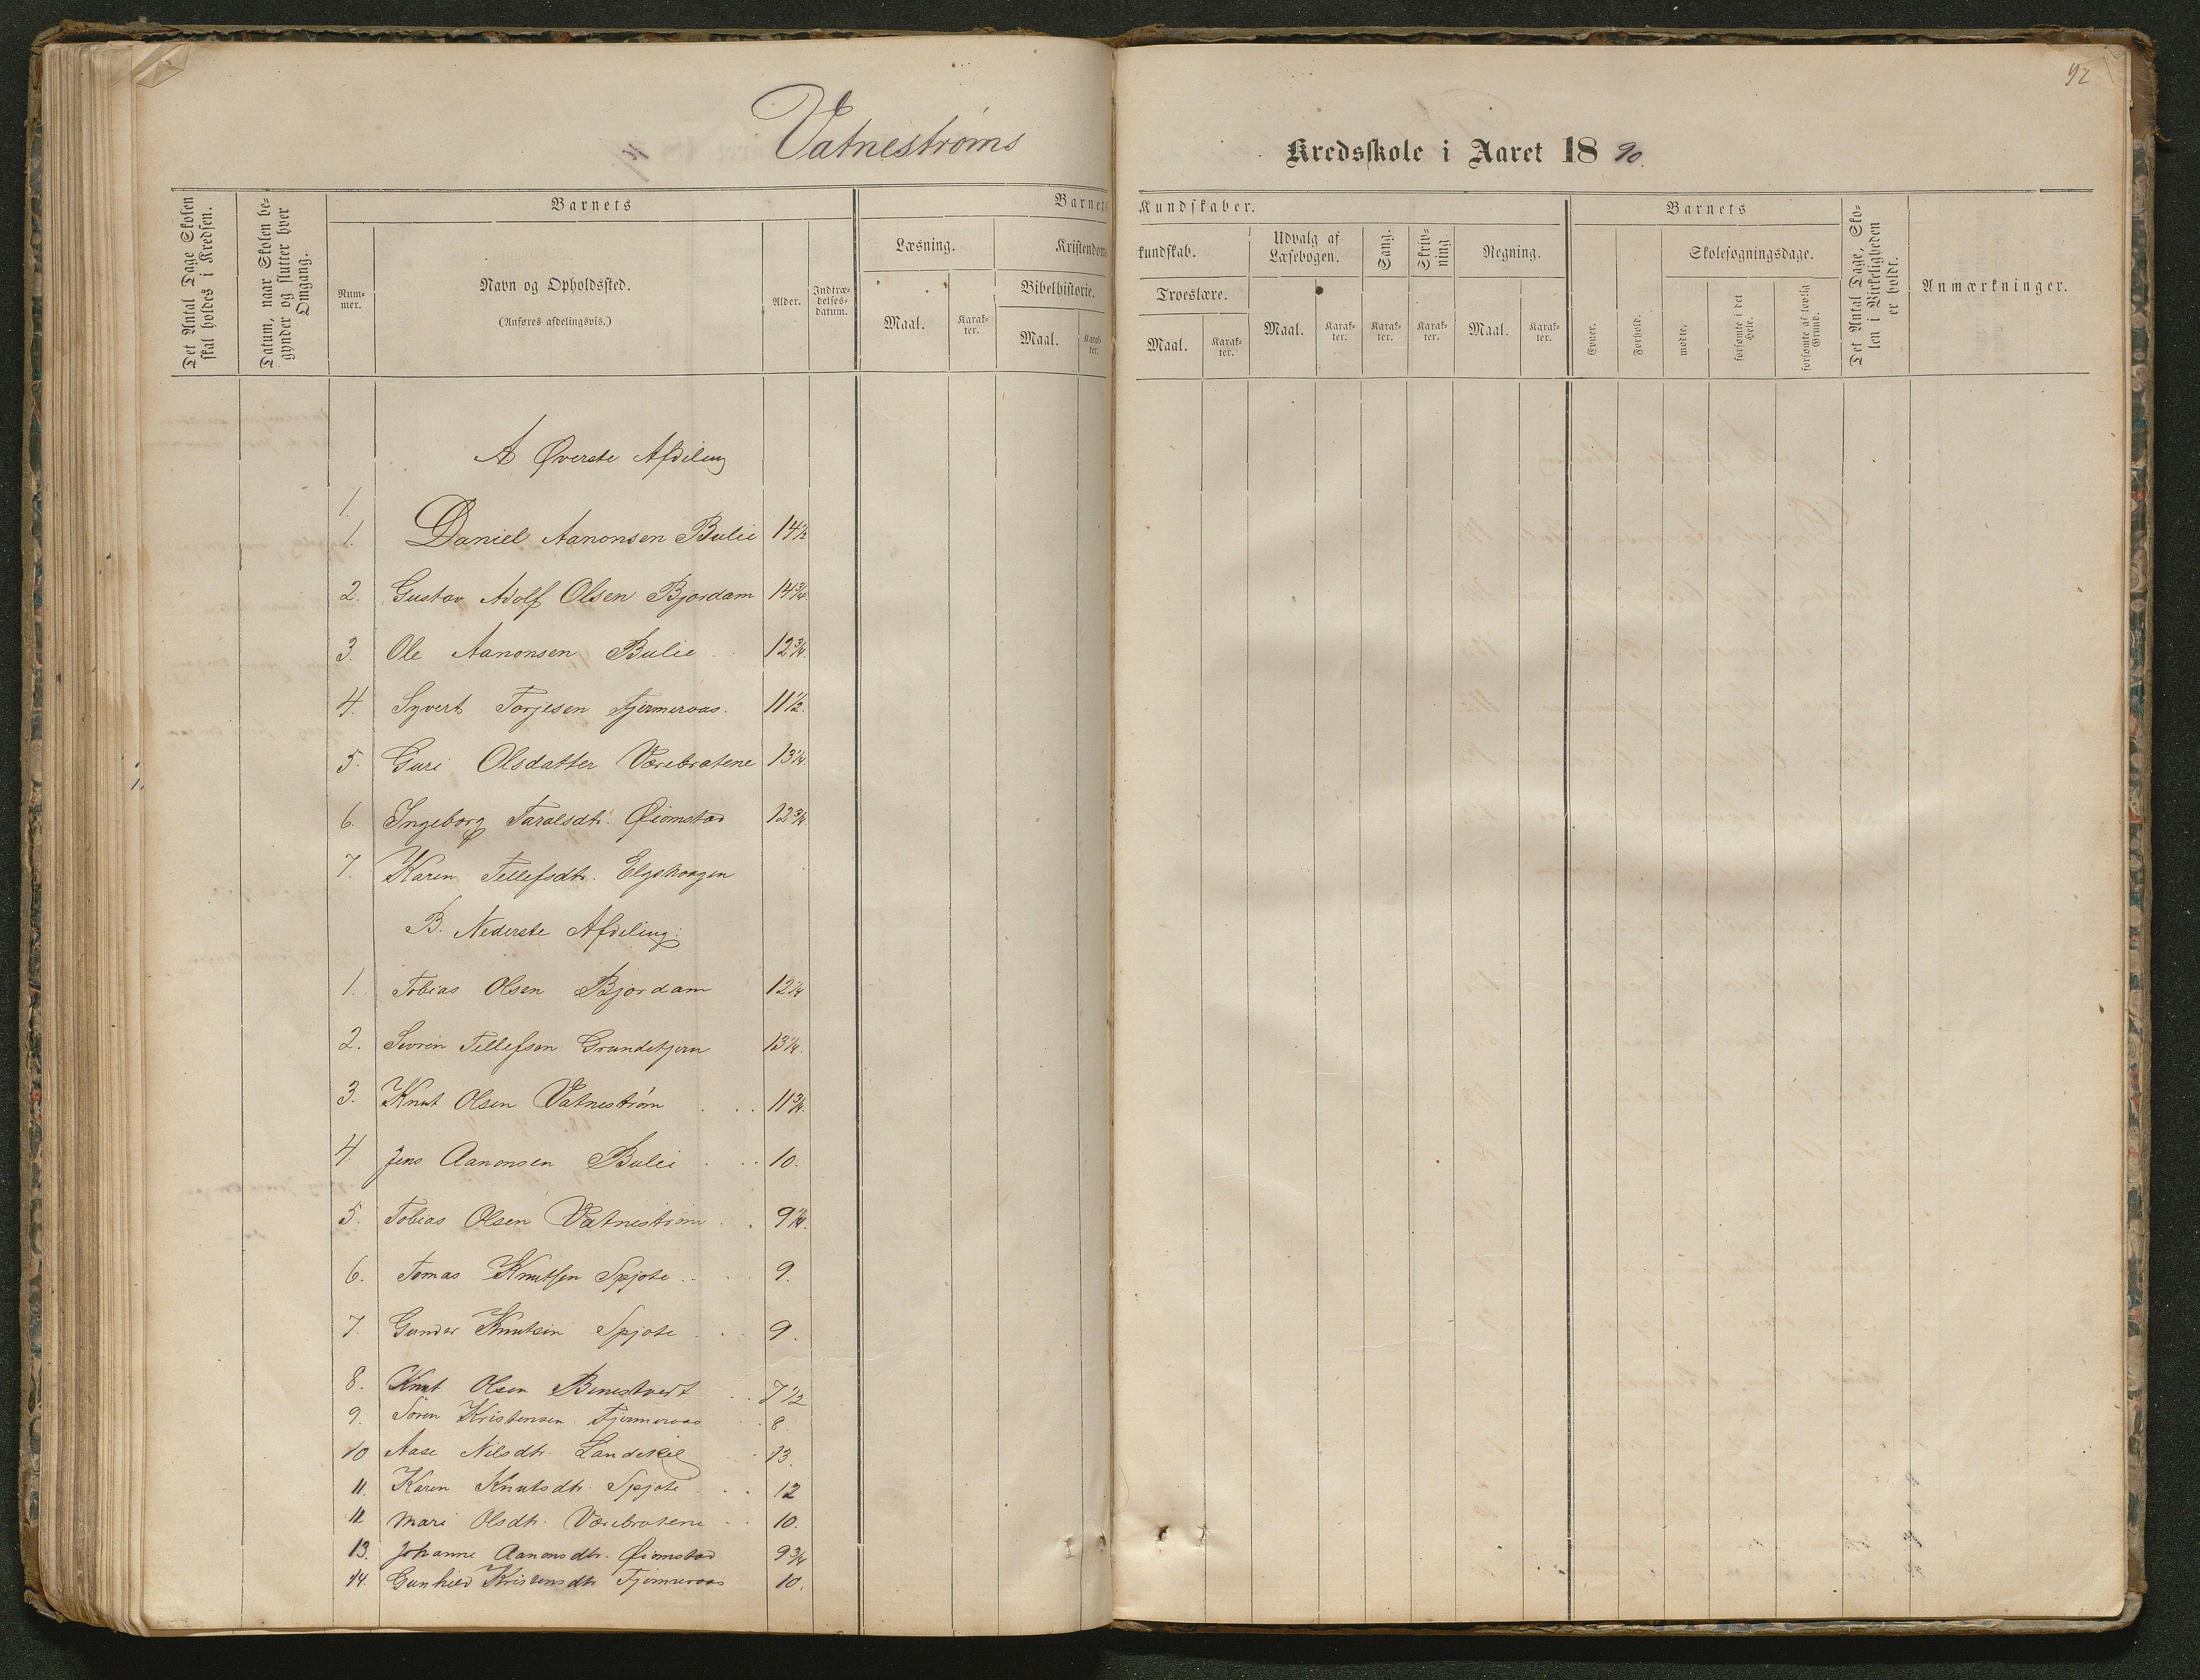 92
Vatnestrøms Kredsskole i Aaret 18 90.
Det Antal Dage Skolen skal holdes i Kredsen.
Datum, naar Skolen begynder og slutter hver Omgang.
Barnets
Nummer.
Navn og Opholdssted.
(Anføres afdelingsvis.)
Alder.
Indtrædelsesdatum.
Barnets Kundskaber.
Læsning.
Maal.
Karakter.
Kristendomskundskab.
Bibelhistorie.
Maal.
Karakter.
Troeslære.
Maal.
Karakter.
Udvalg af Læsebogen.
Maal.
Karakter.
Sang.
Karakter.
Skrivning
Karakter.
Regning.
Maal.
Karakter.
Barnets
Evner.
Forhold.
Skolesøgningsdage.
mødte.
forsømte i det Hele.
forsømte af lovlig Grund.
Det Antal Dage, Skolen i Virkeligheden er holdt.
Anmærkninger.
A Øverste Afdeling
1.
1. Daniel Aanonsen Bulie 14½
2. Gustav Adolf Olsen Bjordam 14¾
3. Ole Aanonsen Bulie 12¾.
4. Syvert Torjesen Fjermeroas. 11½.
5. Guri Olsdatter Værebratene 13¼.
6. Ingeborg Taralsdtr. Øiomstad 12¾
7. Karen Tellefsdtr. Elgshaagen
B. Nederste Afdeling:
1. Tobias Olsen Bjordam 12¼
2. Sevrin Tellefsen Grundetjern 13¼.
3. Knut Olsen Vatnestrøm 11¾.
4 Jens Aanonsen Bulie 10.
5. Tobias Olsen Vatnestrøm 9¼.
6. Tomas Knutsen Spjote 9.
7. Gunder Knutsen Spjote 9.
8. Knut Olsen Benestvedt 7½
9. Søren Kristensen Fjermeroas 8.
10 Aase Nilsdtr. Landekil 13.
11. Karen Knutsdtr. Spjote 12
12 Mari Olsdtr. Værebratene 10.
13. Johanne Aanonsdtr. Øiomstad 9¾
14. Gunhild Kristensdtr Fjermeroas 10.